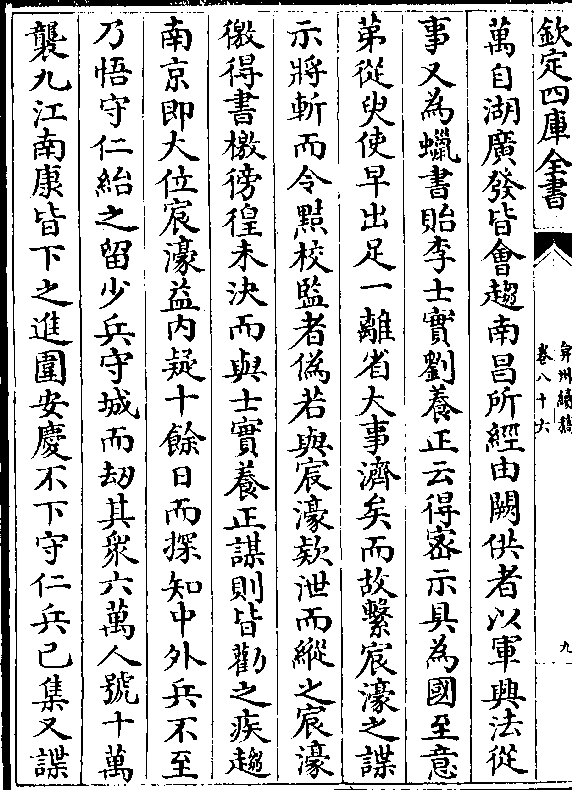 欽定四庫全書
弇州續稿
卷八十六
九
萬自湖廣發皆會趨南昌所經由闕供者以軍興法從
事又為蠟書貽李士實劉養正云得密示具為國至意
苐從臾使早出足一離省大事濟矣而故繫宸濠之諜
示將斬而令㸃校監者偽若與宸濠欵泄而縱之宸濠
檄得書檄徬徨未決而與士實養正謀則皆勸之疾趨
南京即大位宸濠益内疑十餘日而探知中外兵不至
乃悟守仁紿之留少兵守城而刼其衆六萬人號十萬
襲九江南康皆下之進圍安慶不下守仁兵已集又諜